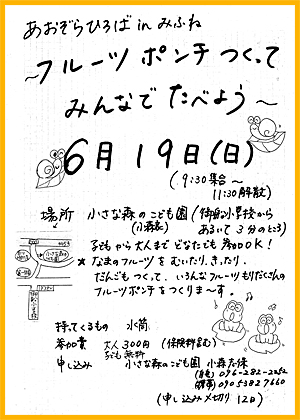 あおぞらひろば in みふね
~フルーツ ポンチ つくって
みんなで たべよう~
6月19日(日)
(9:30集合~
11:30解散)
場所 小さな森のこども園 (御船小学校から
(小森家) あるいて 3分のところ)
子どもから大人まで どなたでも 参加OK!
★ なまのフルーツを むいたり、きったり、
だんごもつくって、いろんなフルーツもりだくさんの
フルーツポンチを つくりま~す。
持ってくるもの 水筒
参加費 大人 300円 (保険料含む)
子ども 無料
申し込み 小さな森のこども園 小森
096-282-2252
(申し込み〆切り 12日)